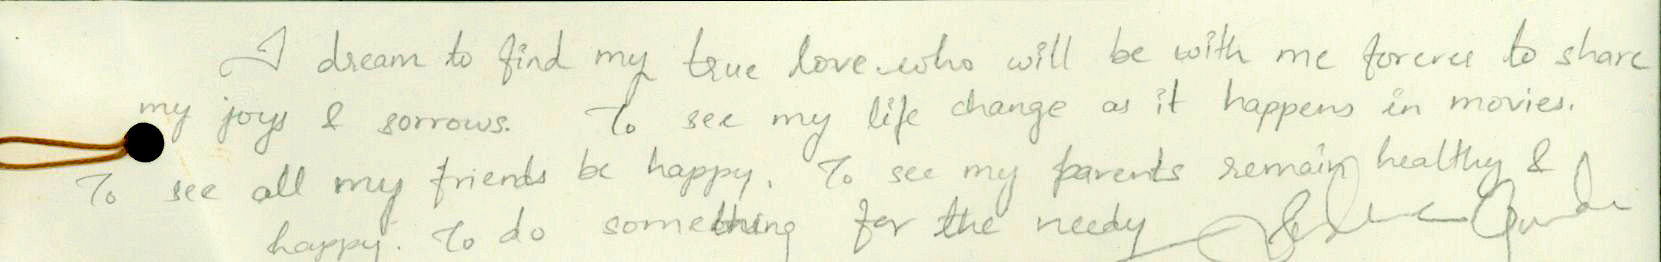 I dream to find my true love who will be with me forever to share
my joys & sorrows. To see my life change as it happens in movies.
To see all my friends be happy. To see my parents remain healthy &
happy. To do something for the needy